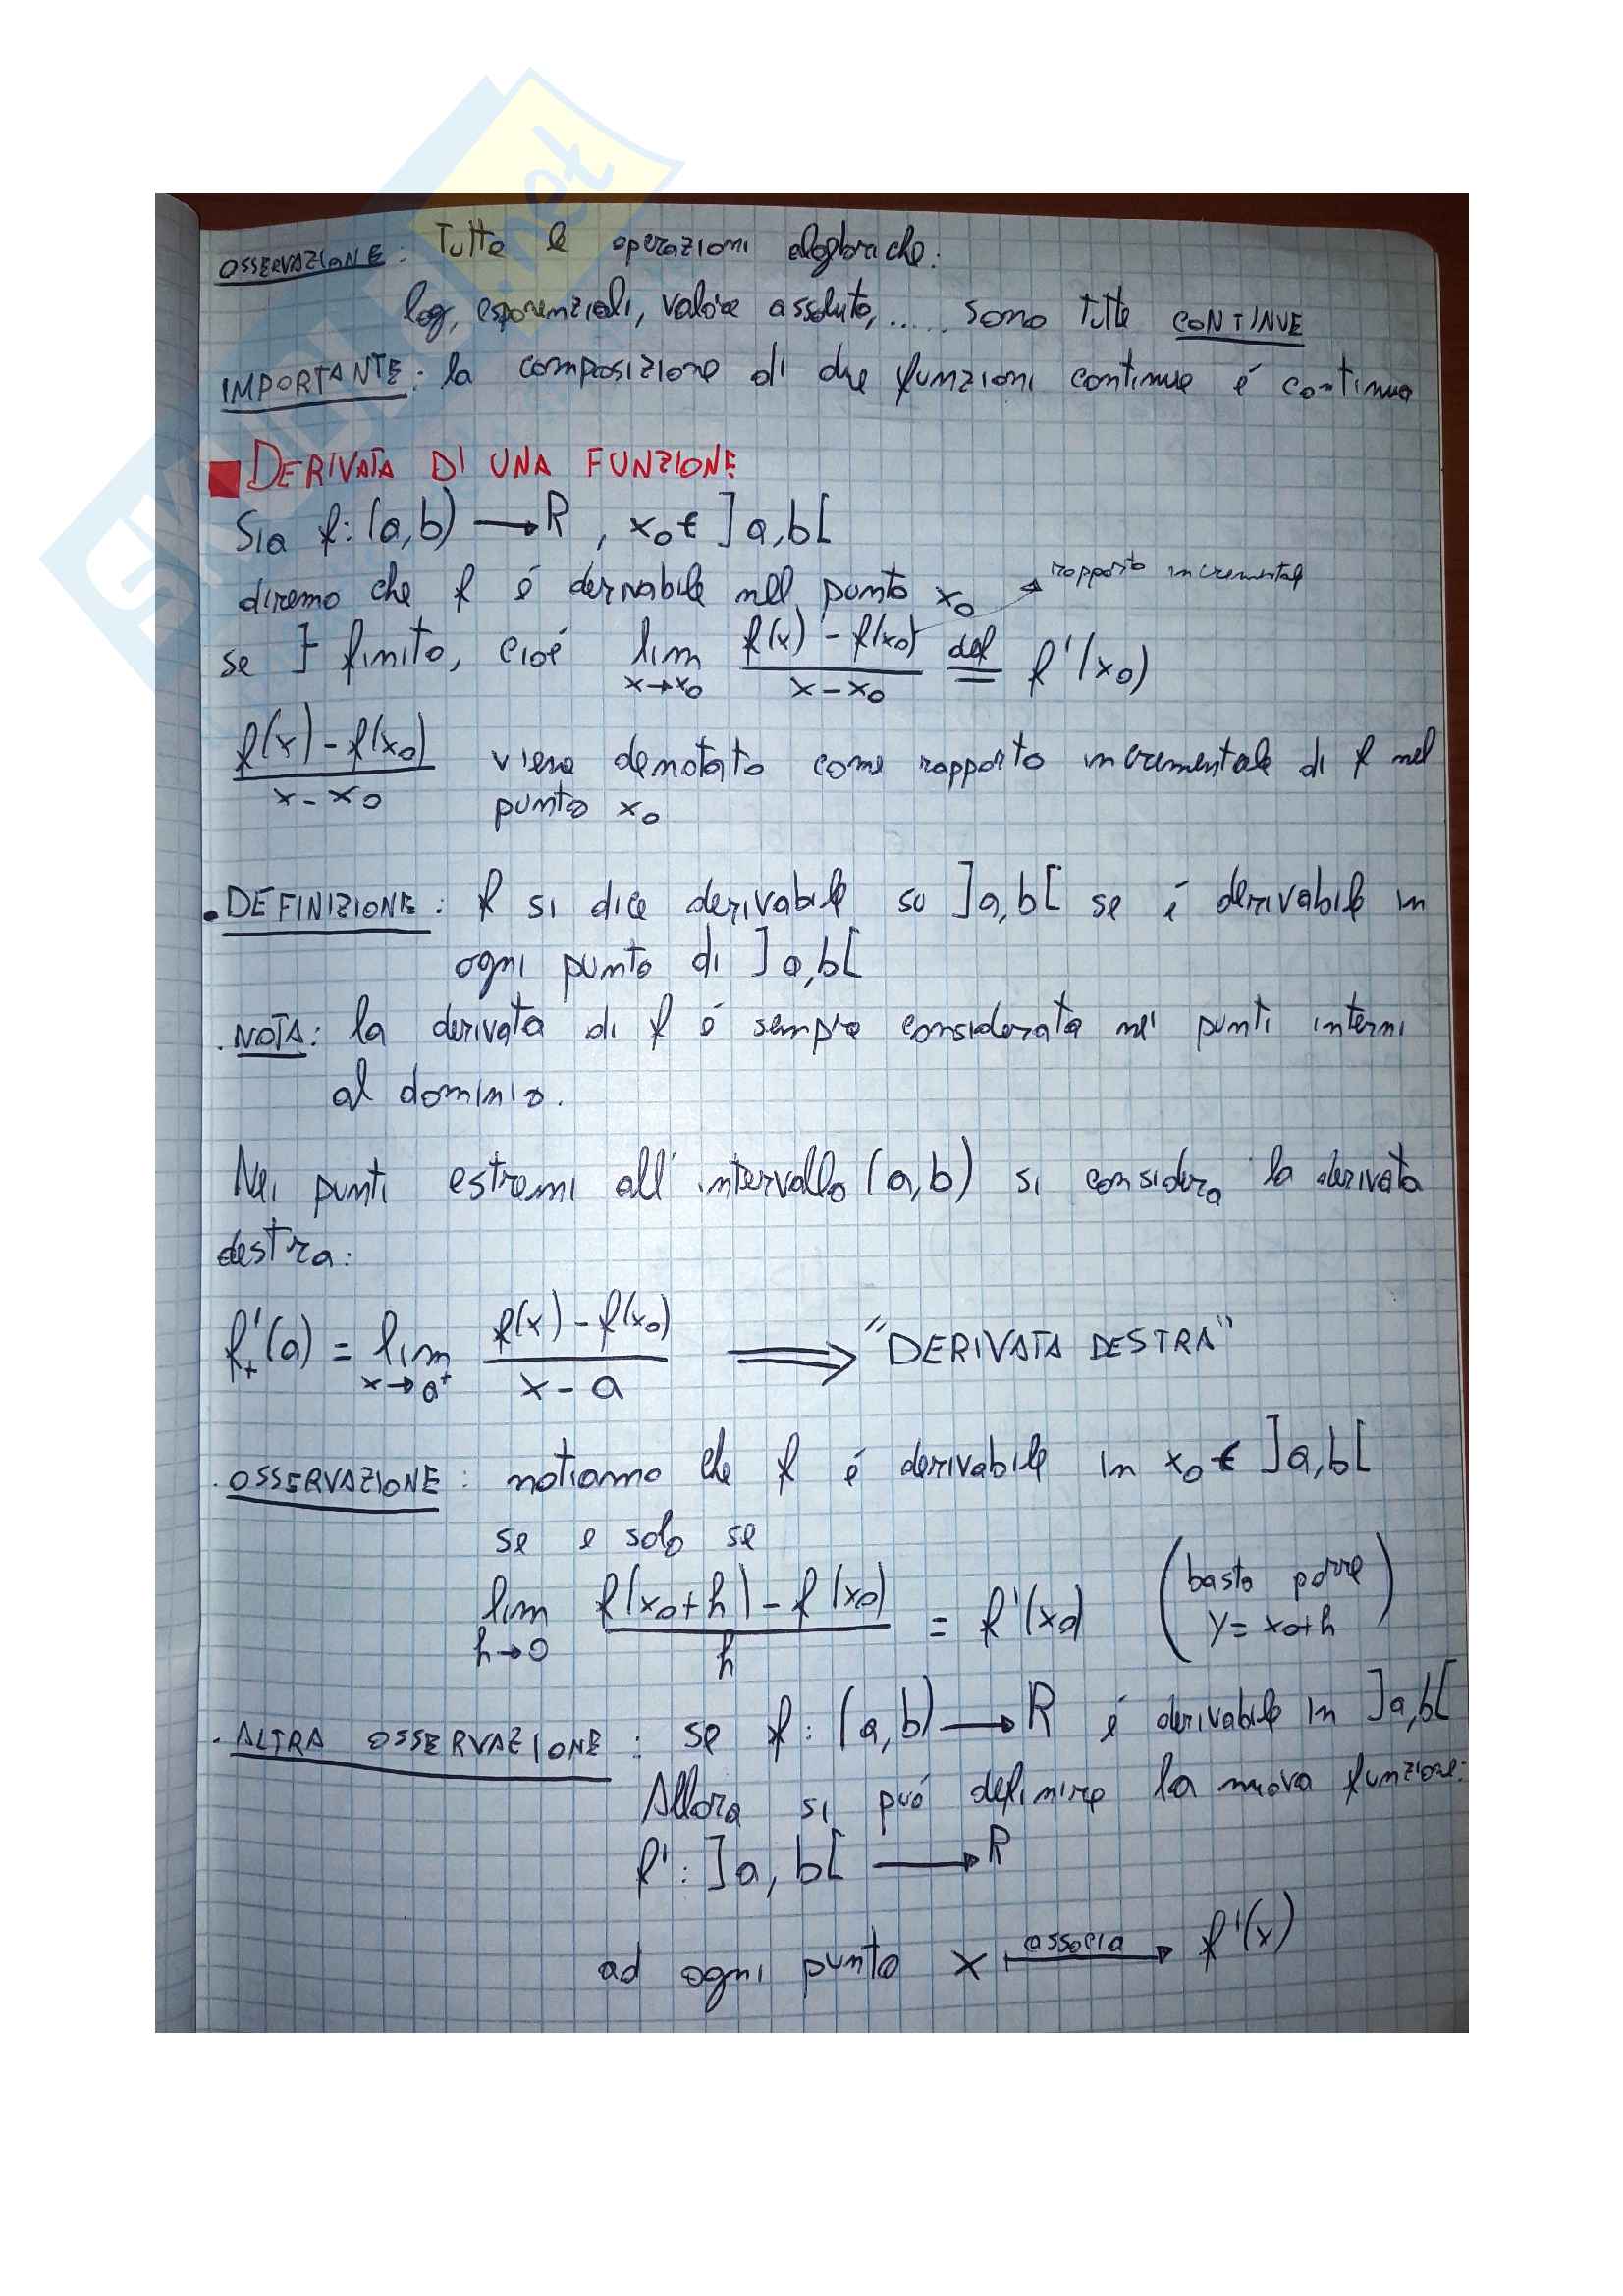 OSSERVAZIONE: Tutte le operazioni algebriche:
log, esponenziali, valore assoluto, ..... sono tutte CONTINUE
IMPORTANTE: la composizione di due funzioni continue é continua
DERIVATA DI UNA FUNZIONE
Sia f: (a,b) → R , x₀ ∈ ]a,b[
diremo che f é derivabile nel punto x₀ → rapporto incrementale
se ∃ finito, cioé lim x→x₀ (f(x) - f(x₀))/(x - x₀) =def f'(x₀)
(f(x) - f(x₀))/(x - x₀) viene denotato come rapporto incrementale di f nel
punto x₀
. DEFINIZIONE: f si dice derivabile su ]a,b[ se é derivabile in
ogni punto di ]a,b[
. NOTA: la derivata di f é sempre considerata nei punti interni
al dominio.
Nei punti estremi all'intervallo (a,b) si considera la derivata
destra:
f'₊(a) = lim x→a⁺ (f(x) - f(x₀))/(x - a) ⟹ "DERIVATA DESTRA"
. OSSERVAZIONE: notiamo che f é derivabile in x₀ ∈ ]a,b[
se e solo se
lim h→0 (f(x₀+h) - f(x₀))/h = f'(x₀) (basta porre
y = x₀+h)
. ALTRA OSSERVAZIONE: se f: (a,b) → R é derivabile in ]a,b[
Allora si può definire la nuova funzione:
f': ]a,b[ → R
ad ogni punto x ↦ associa f'(x)
SKUOLA.net